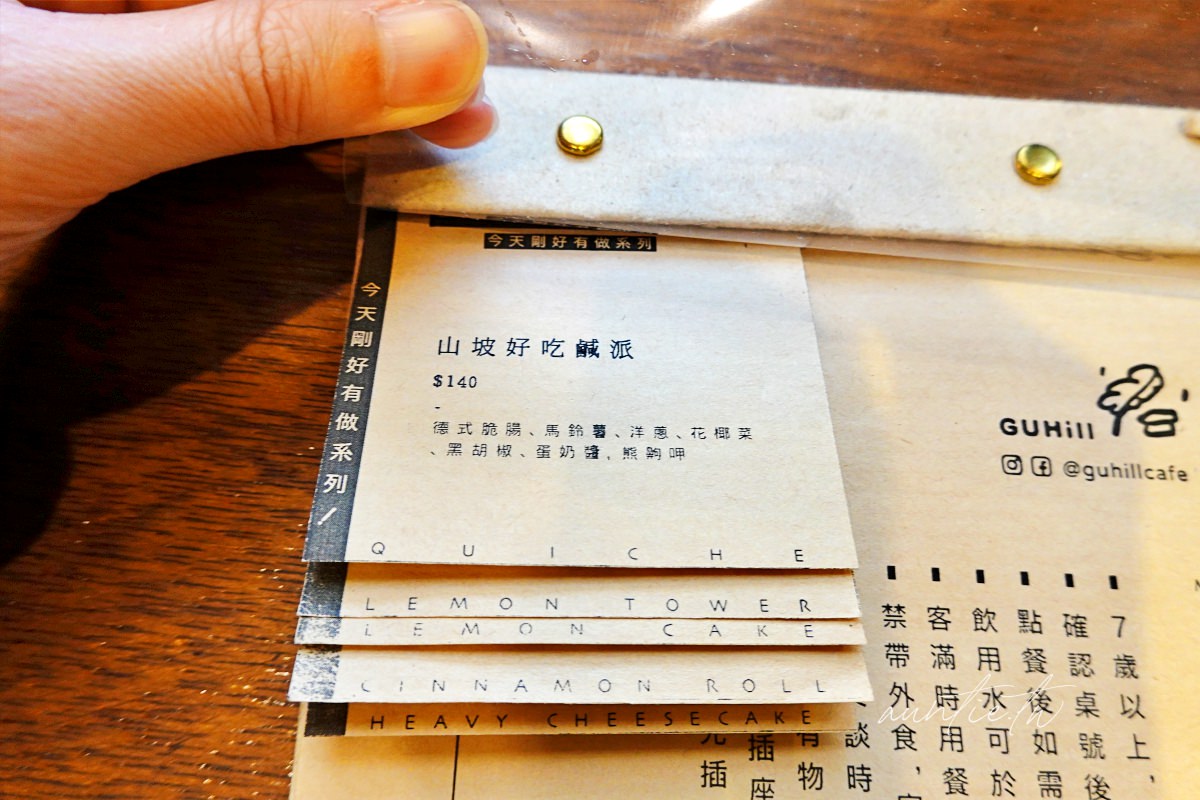 今天剛好有做系列
今天剛好有做系列/
山坡好吃鹹派
$140
-
德式脆腸、馬鈴薯、洋蔥、花椰菜
、黑胡椒、蛋奶醬, 熊齁呷
QUICHE
LEMON TOWER
LEMON CAKE
CINNAMON ROLL
HEAVY CHEESECAKE
GUHill
@guhillcafe
7歲以上,
確認桌號後
點餐後如需
飲用水可於
客滿時用餐
禁帶外食,
談時
有物
插座
插
auntie.ta